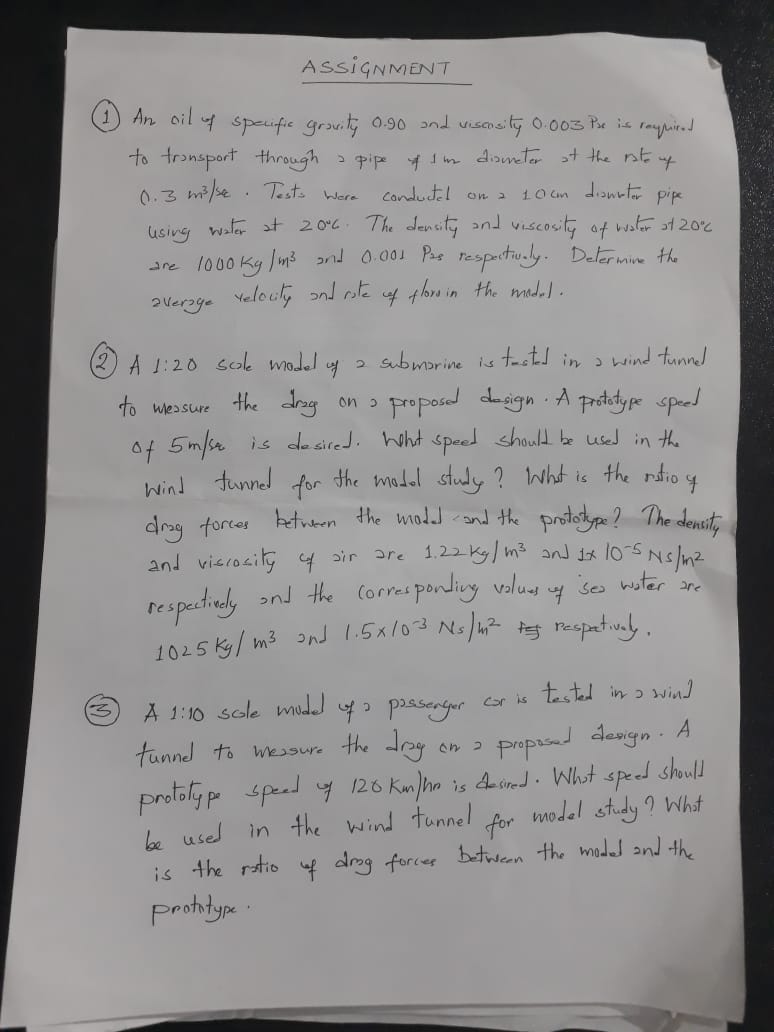 ASSIGNMENT
① An oil of specific gravity 0.90 and viscosity 0.003 Pas is required
to transport through a pipe of 1m diameter at the rate of
0.3 m³/se. Tests were conducted on a 10cm diameter pipe
using water at 20°C. The density and viscosity of water at 20°C
are 1000 Kg/m³ and 0.001 Pas respectively. Determine the
average velocity and rate of flow in the model.
② A 1:20 scale model of a submarine is tested in a wind tunnel
to measure the drag on a proposed design. A prototype speed
of 5m/se is desired. What speed should be used in the
wind tunnel for the model study? What is the ratio of
drag forces between the model and the prototype? The density
and viscosity of air are 1.22 Kg/m³ and 1x10⁻⁵ Ns/m²
respectively and the corresponding values of sea water are
1025 Kg/m³ and 1.5x10⁻³ Ns/m² respectively.
③ A 1:10 scale model of a passenger car is tested in a wind
tunnel to measure the drag on a proposed design. A
prototype speed of 126 Km/hr is desired. What speed should
be used in the wind tunnel for model study? What
is the ratio of drag forces between the model and the
prototype.